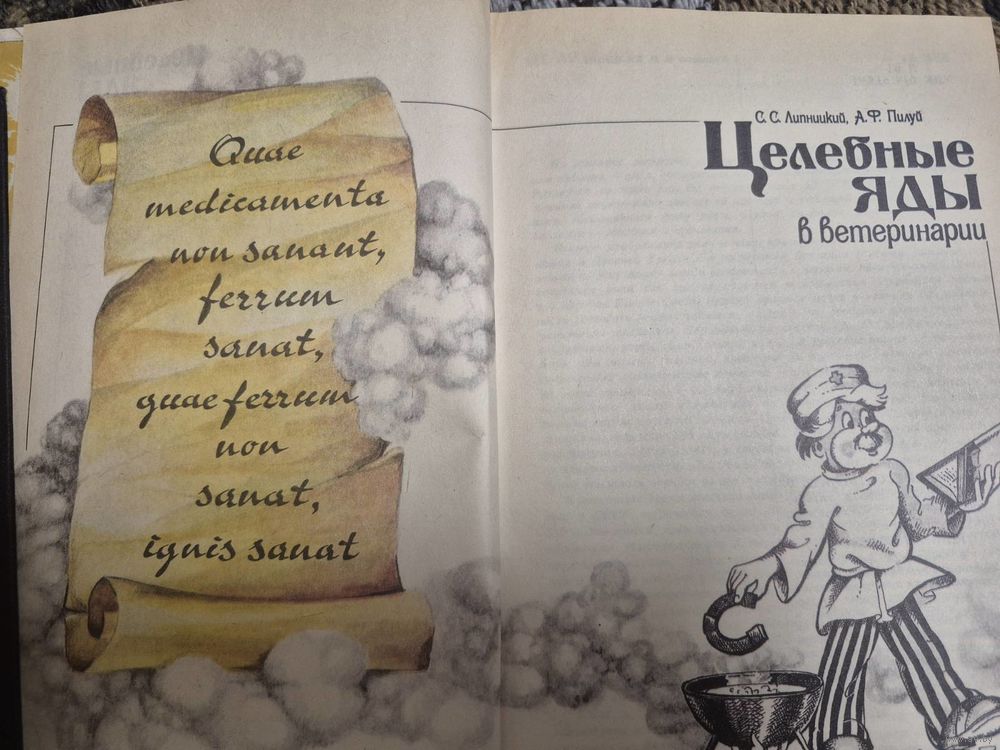 Quae
medicamenta
non sanant,
ferrum
sanat,
quae ferrum
non
sanat,
ignis sanat
С. С. Липницкий, А. Ф. Пилуй
Целебные
яды
в ветеринарии